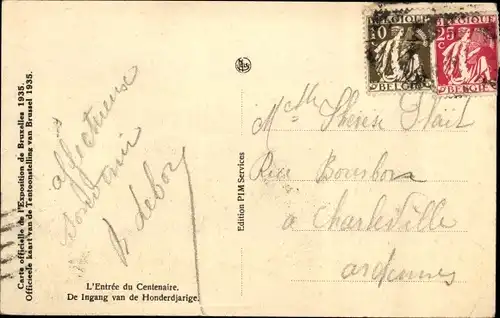 Carte officielle de l'Exposition de Bruxelles 1935.
Officieele kaart van de Tentoonstelling van Brussel 1935.
affectueuse
Souvenir
L'Entrée du Centenaire.
De Ingang van de Honderdjarige.
Edition PIM Services
BELGIQUE
10 C
BELGIE
BELGIQUE
25 C
BELGIE
Melle Thérèse
Rue Bourbon
à Charleville
ardennes